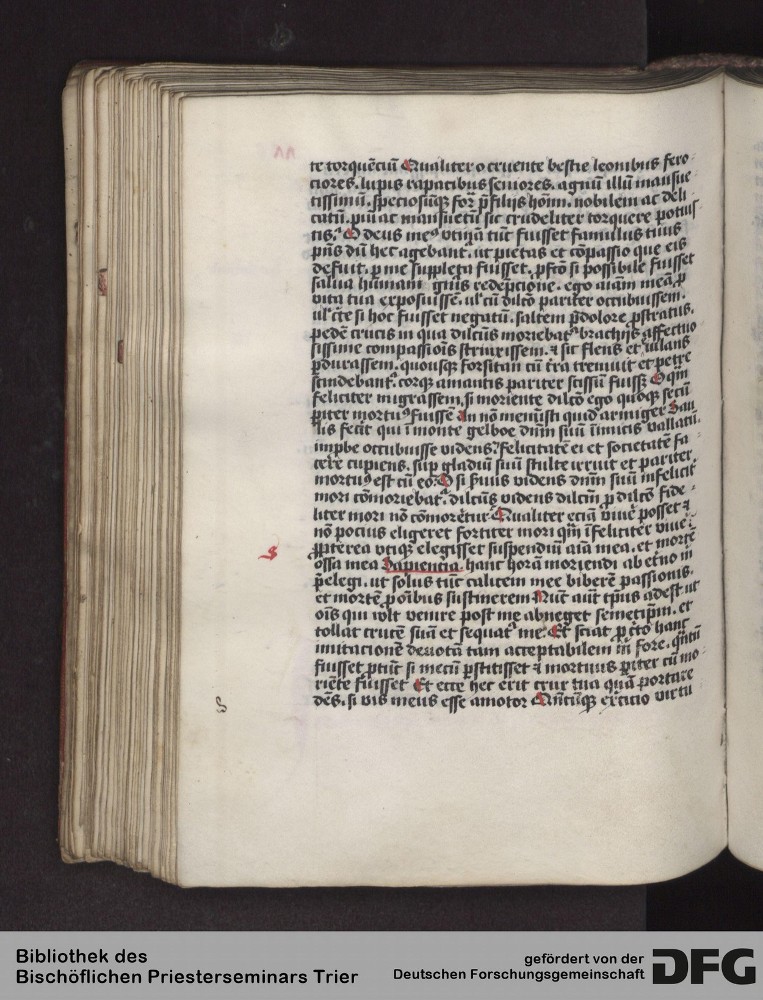 te torquēciū Qualiter o cruente bestie leonibus fero
ciores. lupis rapacibus seniores. agnū illū mansue
tissimū. speciosūqȝ for̄ p̄ filijs hoīm. nobilem ac deli
catū. piū ac mansuetū sic crudeliter torquere potuis
tis. O deus meꝰ vtinā tūc fuisset famulus tuus
p̄ns dū hec agebant᷑. ut pietas et cōpassio que eis
defuit. ꝑ me suppleta fuisset. ꝓfcō si possibile fuisset
salua humani gn̄is redēpcione. ego aīam meā ꝓ
vita tua exposuissē. ul̓ cū dilc̄o pariter occubuissem.
ul̓ c̄te si hoc fuisset negatū. saltem p̄ dolore ꝓstratus.
pedē crucis in qua dilc̄us moriebat᷑ brachijs affectuo
sissime compassiōis strinxissem. ⁊ sic flens et iulans
ꝑdurassem. quousqȝ forsitan cū t̄ra tremuit et petre
scindebant᷑. corqȝ amantis pariter scissū fuissȝ O qm̄
feliciter migrassem. si moriente dilc̄o ego quoqȝ secū
ꝑiter mortuꝰ fuissē An nō meministi quod armiger Sau
lis fecit qui ī monte gelboe dn̄m suū īimicis vallatū.
imp̱be occubuisse videns? felicitatē ei et societatē fa
cere cupiens. suꝑ gladiū suū stulte irruit et pariter
mortuꝰ est cū eo. O si s̄uus videns dn̄m suū infelicit̄
mori cōmoriebat᷑. dilcūs videns dilcm̄ ꝓ dilc̄o fide
liter mori nō cōmorēt᷑ur Qualiter eciā viuē posset ⁊
nō pocius eligeret fortiter mori qm̄ īfeliciter viue᷑
Ꝓpterea vtiqȝ elegisset suspendiū aīa mea. et mortē
ossa mea Sapientia. hanc horā moriendi ab et̄no in
p̄elegi. ut solus tūc calicem mee biberē passionis.
et mortē ꝓ oībus sustinerem Nūc aūt tp̄us adest ut
oīs qui vl̓t venire post me abneget semetip̄m. et
tollat crucē suā et sequat᷑ me. Et sciat ꝓ c̄to hanc
imitacionē deuotā tam acceptabilem m̄ fore. q̄ntū
fuisset p̄tiūt si mecū ꝑstitisset ⁊ mortuus ꝑiter cū mo
riēte fuisset Et ecce hec erit crux tua quā portare
dēs. si vis meus esse amotor Qn̄cūqȝ ex̄citio virtu
S
Bibliothek des
Bischöflichen Priesterseminars Trier
gefördert von der
Deutschen Forschungsgemeinschaft
DFG